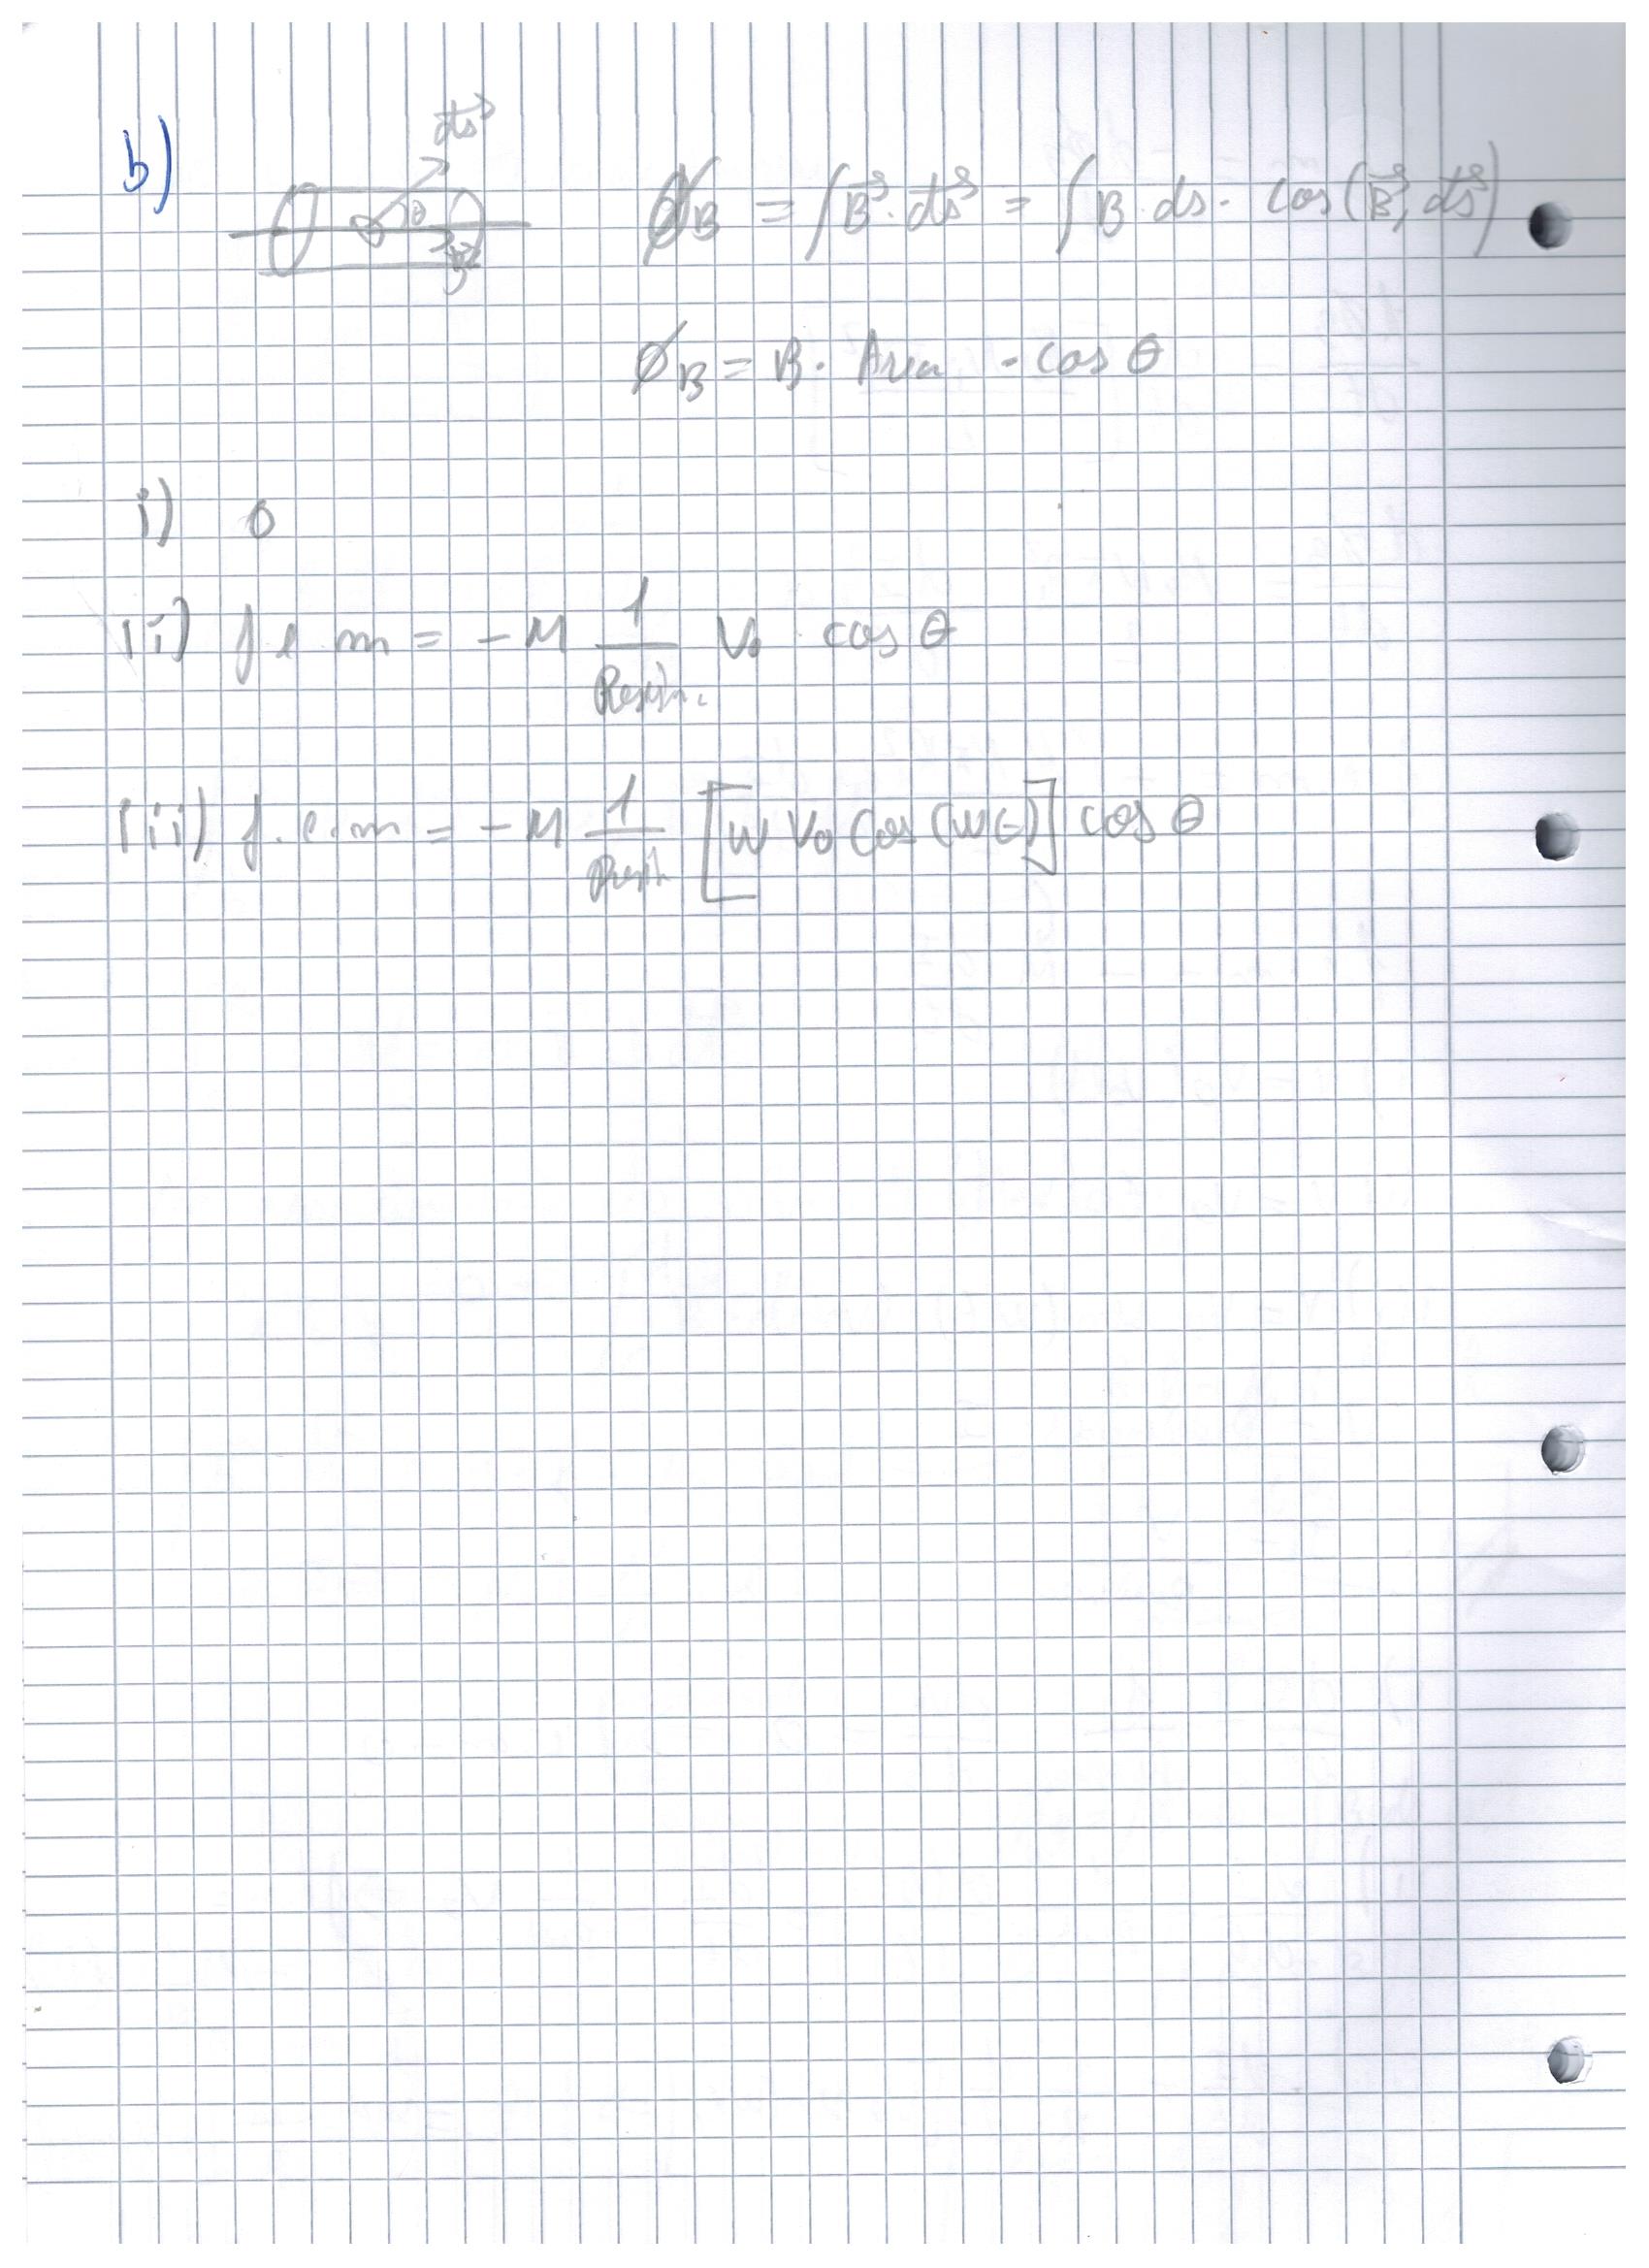 b)
ds⃗
θ
B⃗
ϕ_B = ∫B⃗·ds⃗ = ∫B ds· cos(B⃗, ds⃗)
ϕ_B = B· Area · cos θ
i) 0
ii) f e m = -M 1/Resist. V₀ cos θ
iii) f.e.m = -M 1/Resist. [w V₀ cos(wt)] cos θ